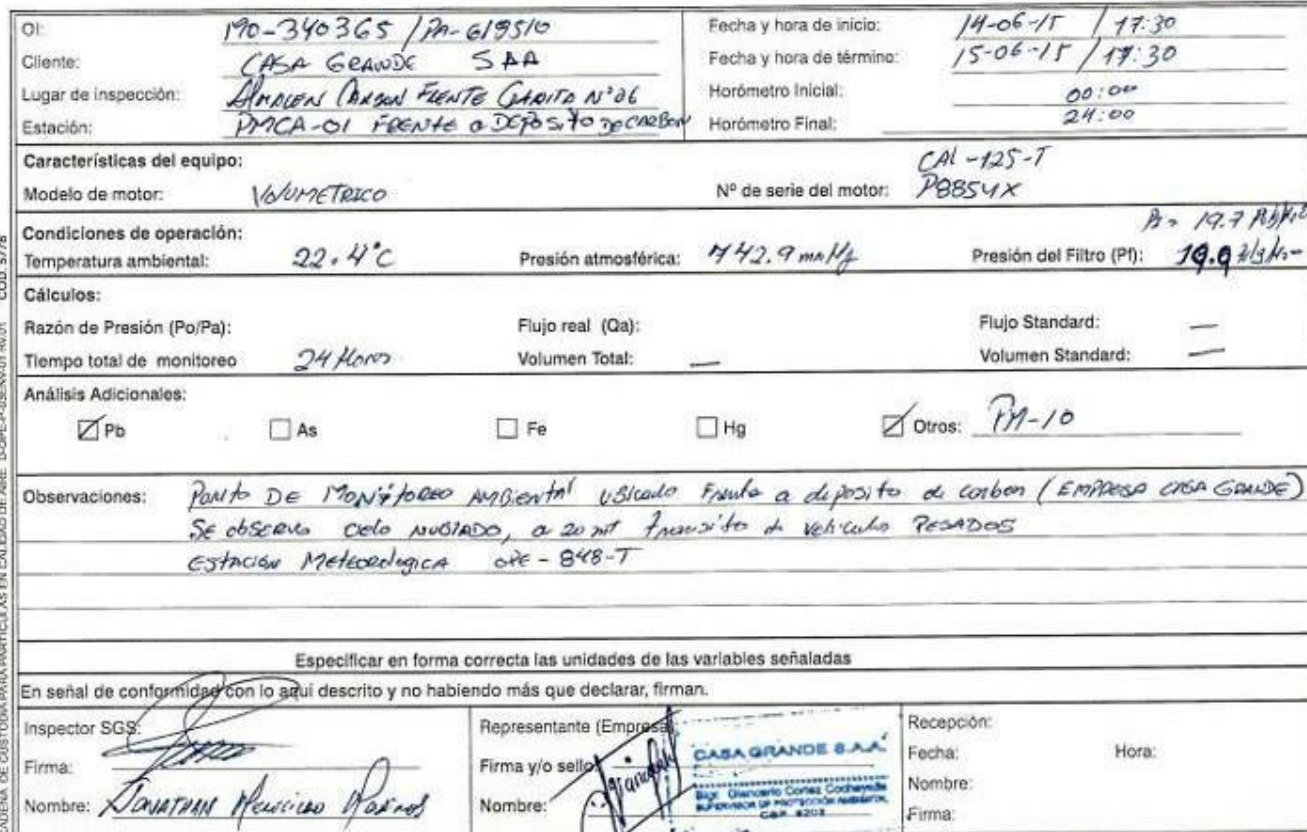 OI: 190-340365 / PA-619510
Fecha y hora de inicio: 14-06-15 / 17:30
Cliente: CASA GRANDE SAA
Fecha y hora de término: 15-06-15 / 17:30
Lugar de inspección: ALMACEN CARBON FRENTE GARITA N°06
Horómetro Inicial: 00:00
Estación: PMCA-01 FRENTE a DEPOSITO DE CARBON
Horómetro Final: 24:00
Características del equipo:
CAL-125-T
Modelo de motor: VOLUMETRICO
Nº de serie del motor: P8854X
Condiciones de operación:
19.7
Temperatura ambiental: 22.4°C
Presión atmosférica: 742.9 mmHg
Presión del Filtro (Pf): 19.9
Cálculos:
Razón de Presión (Po/Pa):
Flujo real (Qa):
Flujo Standard: —
Tiempo total de monitoreo 24 Horas
Volumen Total: —
Volumen Standard: —
Análisis Adicionales:
Pb
As
Fe
Hg
Otros: PM-10
Observaciones: PUNTO DE MONITOREO AMBIENTAL UBICADO Frente a deposito de carbon (EMPRESA CASA GRANDE)
SE OBSERVO CIELO NUBLADO, a 20 mt transito de vehiculo PESADOS
ESTACIÓN METEOROLOGICA OPE-848-T
Especificar en forma correcta las unidades de las variables señaladas
En señal de conformidad con lo aquí descrito y no habiendo más que declarar, firman.
Inspector SGS:
Firma:
Nombre: JONATHAN
Representante (Empresa
Firma y/o sello
Nombre:
CASA GRANDE S.A.A.
Blgr. Giancarlo Cortez
SUPERVISOR DE PROTECCIÓN AMBIENTAL
CBP 8203
Recepción:
Fecha: Hora:
Nombre:
Firma:
COD. 5778
CADENA DE CUSTODIA PARA PARTICULAS EN CALIDAD DE AIRE